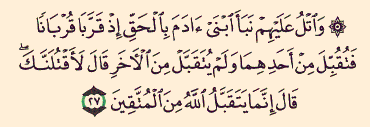 ۞ وَٱتۡلُ عَلَيۡهِمۡ نَبَأَ ٱبۡنَيۡ ءَادَمَ بِٱلۡحَقِّ إِذۡ قَرَّبَا قُرۡبَانٗا
فَتُقُبِّلَ مِنۡ أَحَدِهِمَا وَلَمۡ يُتَقَبَّلۡ مِنَ ٱلۡأٓخَرِ قَالَ لَأَقۡتُلَنَّكَۖ
قَالَ إِنَّمَا يَتَقَبَّلُ ٱللَّهُ مِنَ ٱلۡمُتَّقِينَ ٢٧